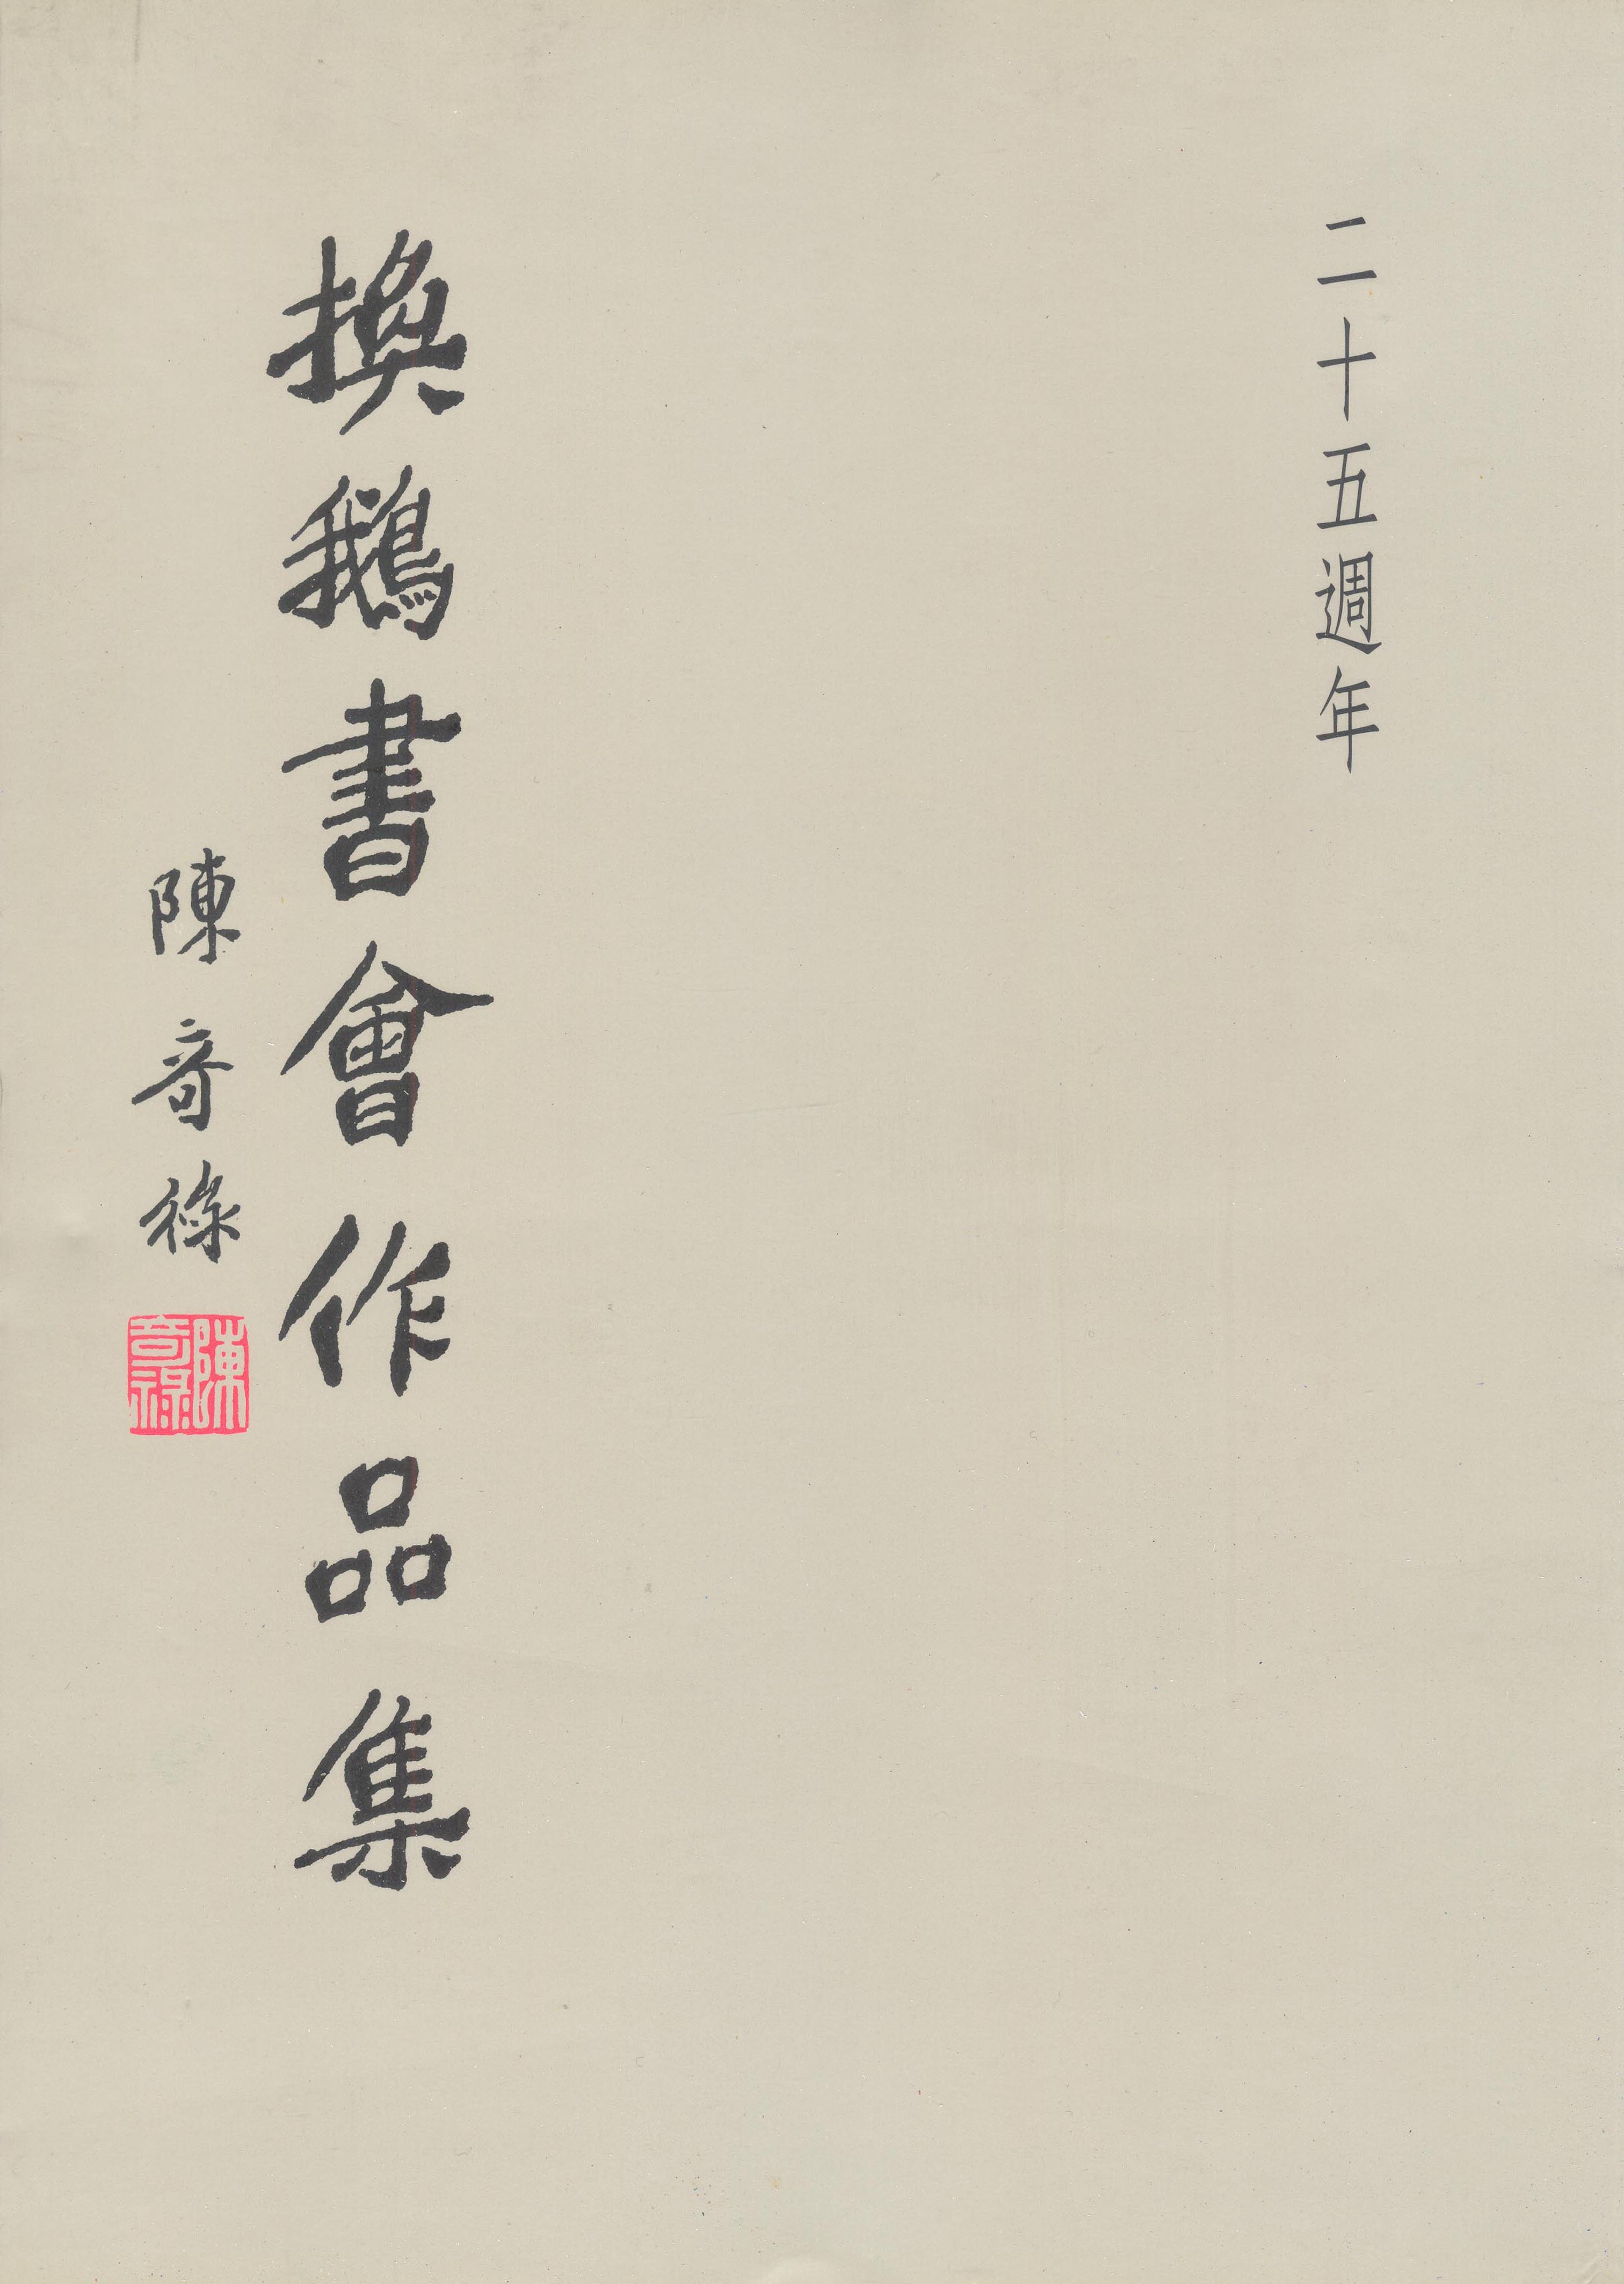 二十五週年
換鵝書會作品集
陳奇祿
陳奇祿